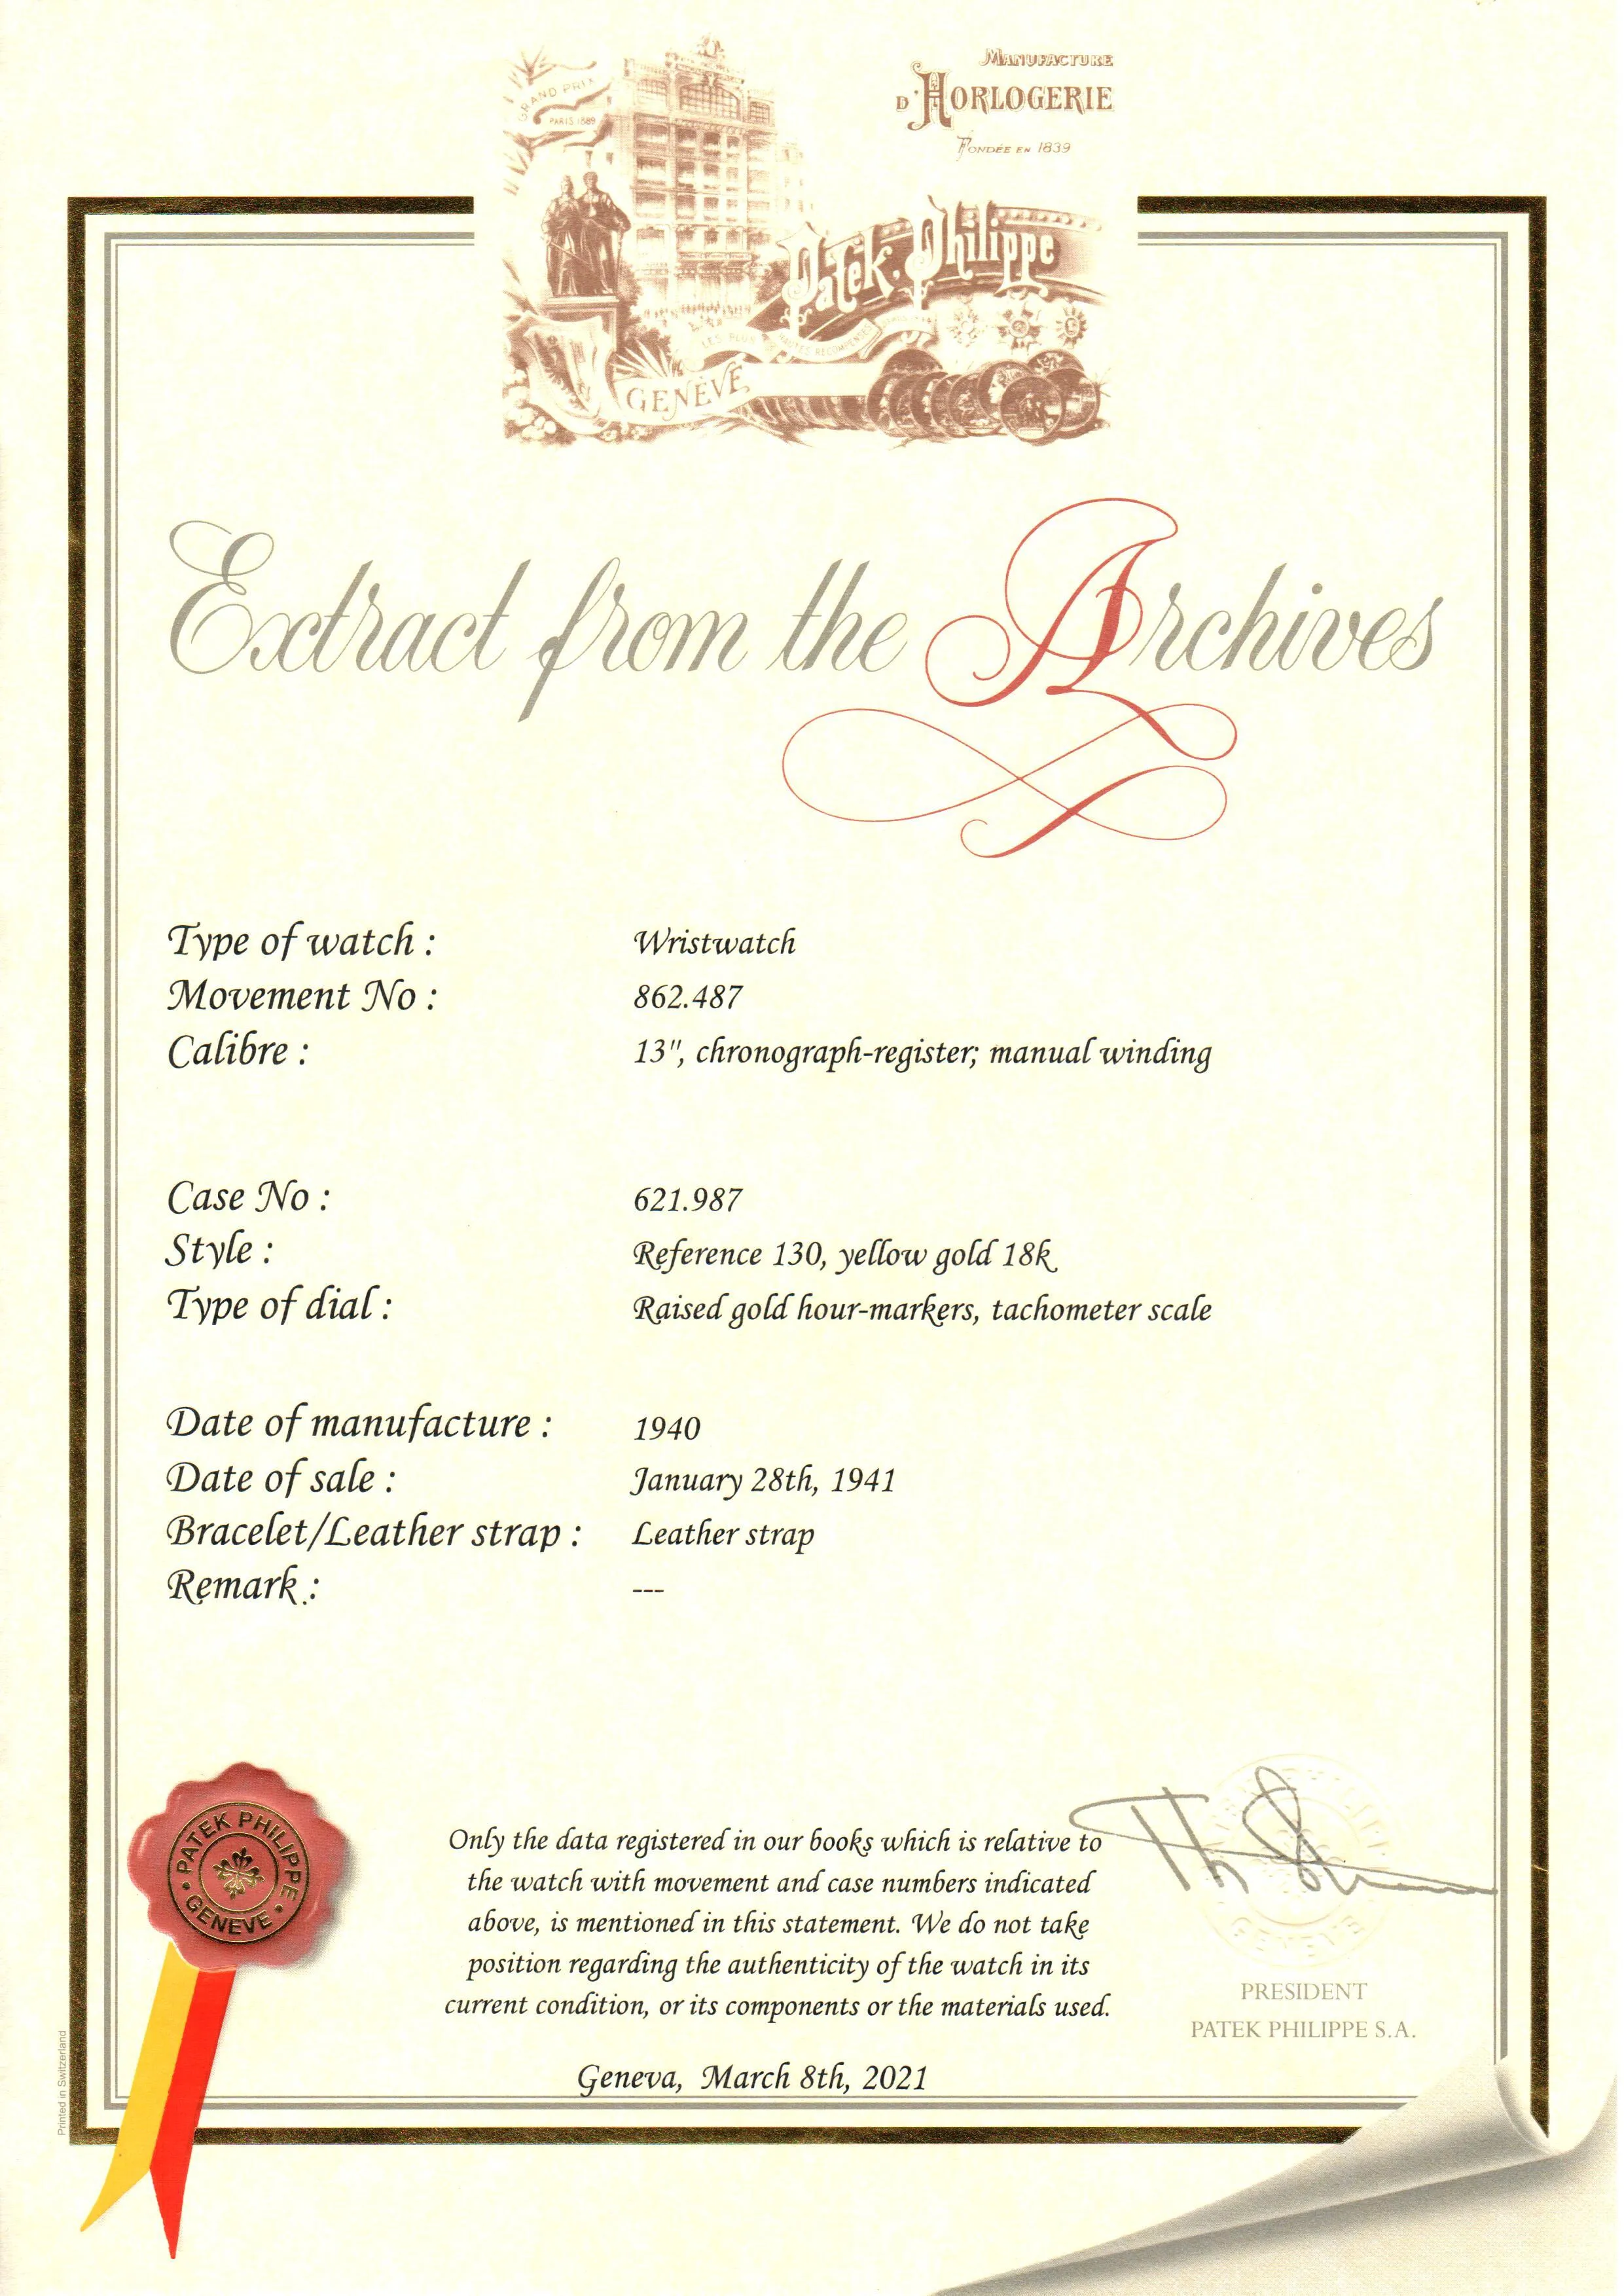 MANUFACTURE
D'HORLOGERIE
FONDÉE EN 1839
GRAND PRIX
PARIS 1889
Patek Philippe
LES PLUS HAUTES RECOMPENSES
GENÈVE
Extract from the Archives
Type of watch : Wristwatch
Movement No : 862.487
Calibre : 13", chronograph-register; manual winding
Case No : 621.987
Style : Reference 130, yellow gold 18k
Type of dial : Raised gold hour-markers, tachometer scale
Date of manufacture : 1940
Date of sale : January 28th, 1941
Bracelet/Leather strap : Leather strap
Remark : ---
PATEK PHILIPPE
GENEVE
Only the data registered in our books which is relative to
the watch with movement and case numbers indicated
above, is mentioned in this statement. We do not take
position regarding the authenticity of the watch in its
current condition, or its components or the materials used.
PRESIDENT
PATEK PHILIPPE S.A.
Geneva, March 8th, 2021
Printed in Switzerland